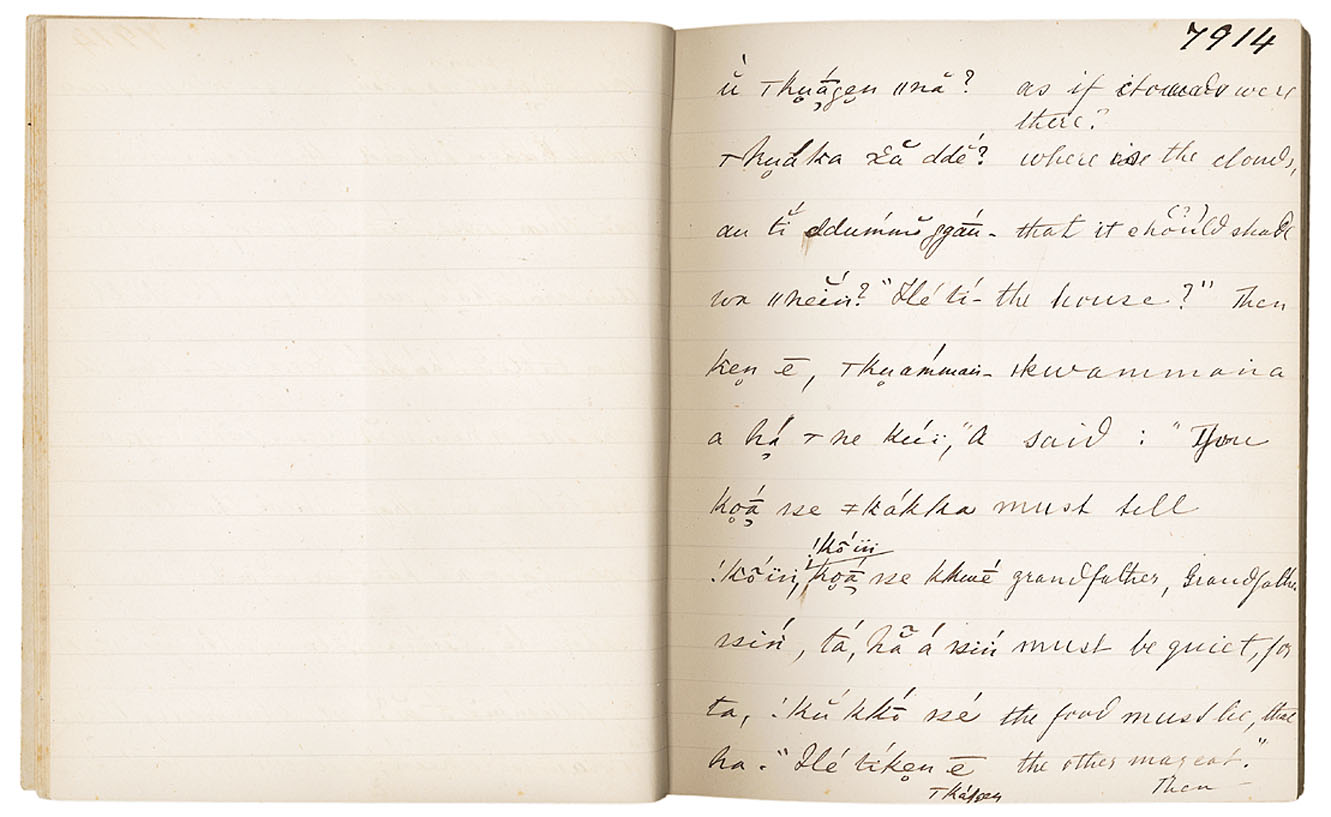 7914
ŭ ⊤kuāgen ǁnă? as if it were
there?
⊤kuákka ddĕ? where is the clouds,
au tĭ ddumḿŭggáu- (?)
that it should shade
wa ǁneiń? "Hé tí- the house?" Then
ken ē, ⊤kuámmaiń- ǀkwammaṅa
a há ⊤ne kúï, "A said : "You
koā́ sse ǂkákka must tell
!kō´ïŋ
!kō´ïŋ, koā́ sse kkwé grandfather, Grandfather
ssiń, tá, hẵ á ssiń must be quiet, for
ta, !kŭ kkō´ sse the food must be, that
ha." Hé tíken ē the other may eat."
Then